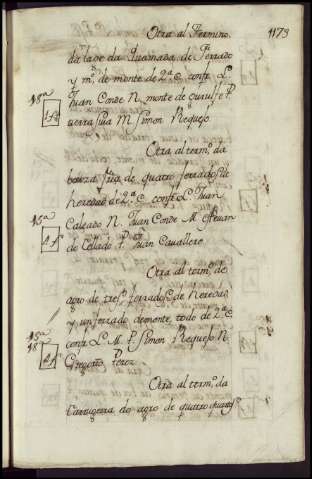 1173
Otra al Termino
da lage da Queimada de Ferrado
y m.º de monte de 2ª C. confr. L.
18ª
Juan Conde N. monte de
tierra suia M. Simon Requejo
Otra al term.º da
bouza de quatro ferrados de
heredad de 2ª C. confr. L. Juan
15ª
Calzado N. Juan Conde M. Esteuan
de Collado P. Juan Cauallero
Otra al term.º de
agro de tres ferrados de heredad
15ª
y un ferrado de monte, todo de 2ª C.
18ª
confr. L. M. P. Simon Requejo N.
Gregorio Perez
Otra al term.º da
do agro de quatro